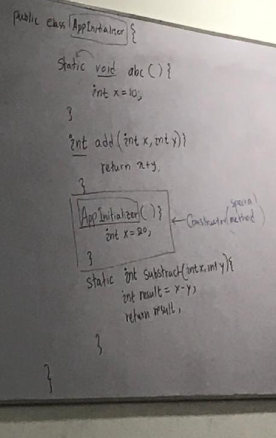 public class AppInitializer {
static void abc() {
int x=10;
}
int add(int x, int y){
return x+y;
}
AppInitializer() {
int x=20;
}
special
Constructor method
static int substract(int x, int y){
int result = x-y;
return result;
}
}